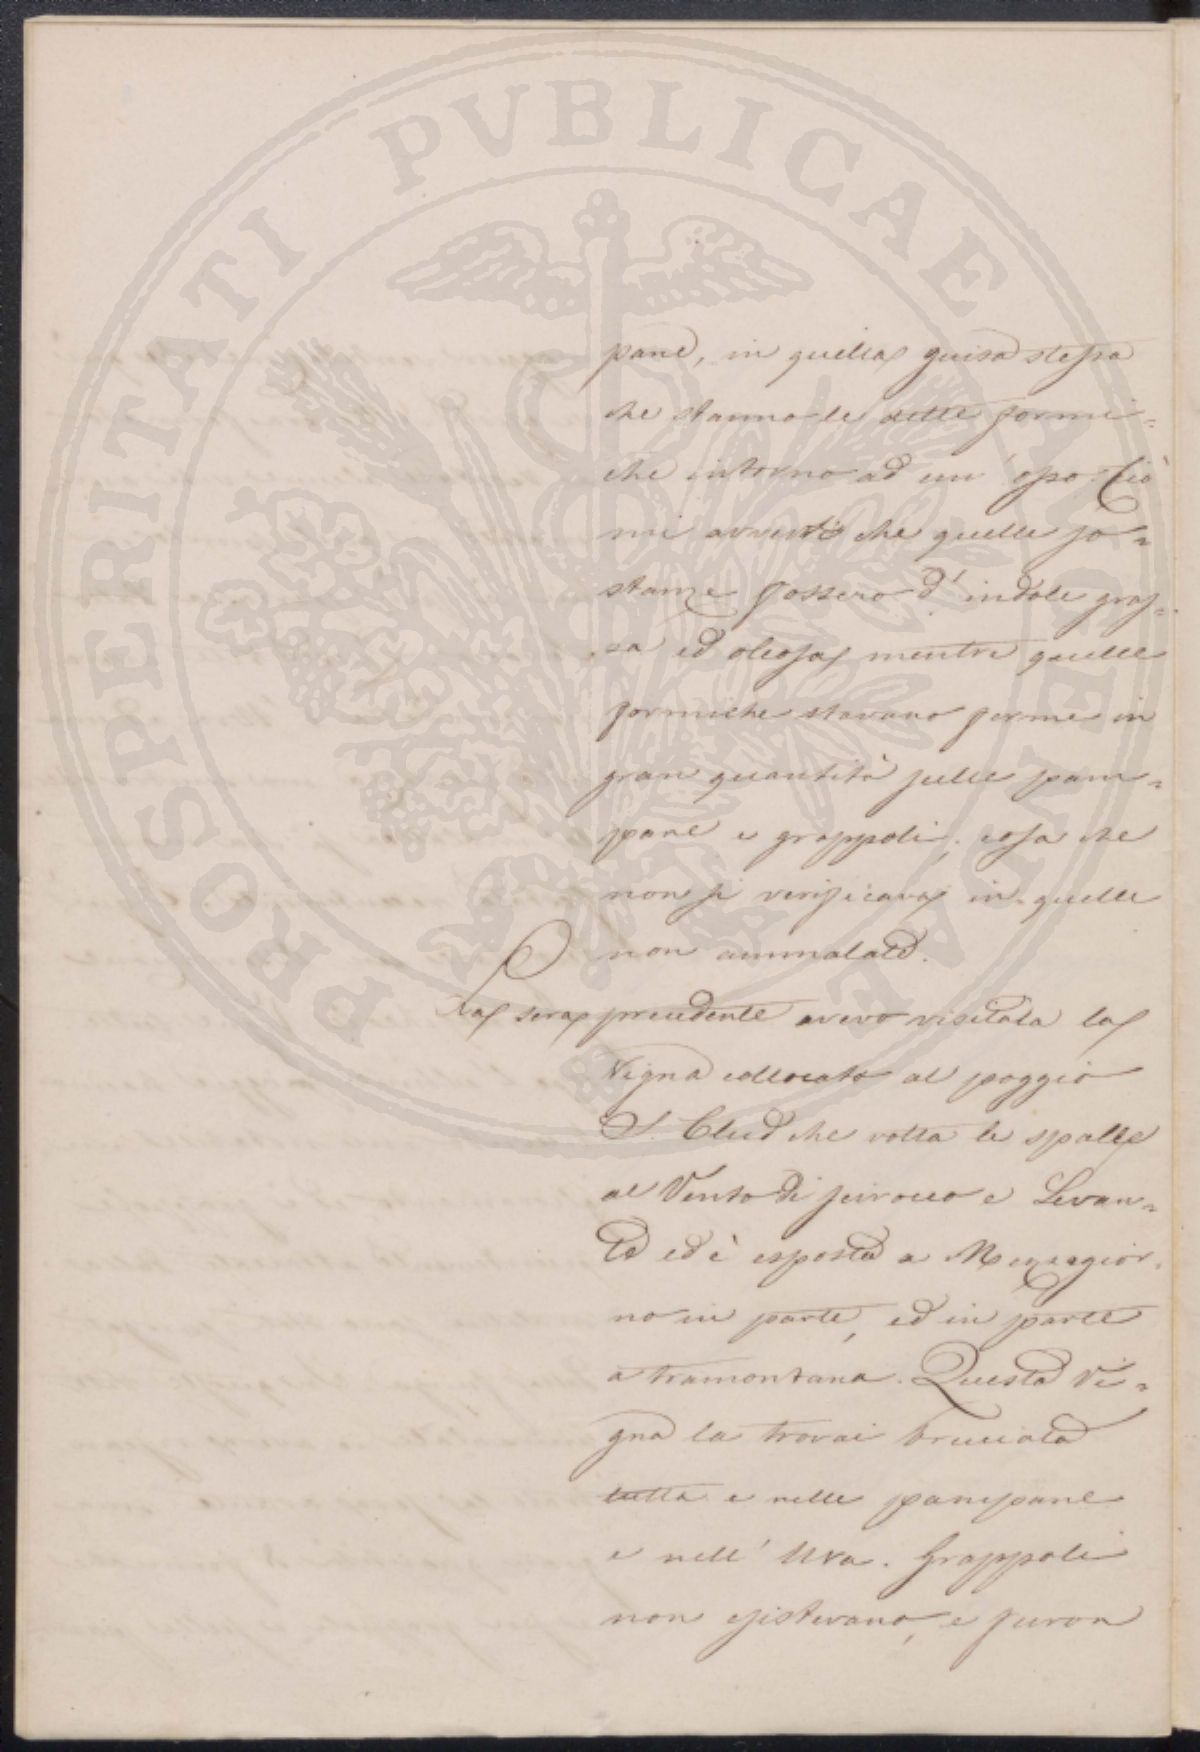 PROSPERITATI PVBLICAE AVGENDAE
pane, in quella guisa stessa
che stanno le dette formi=
che intorno ad un' osso. Ciò
mi avvertì che quelle so=
stanze fossero d'indole gras=
sa ed oleosa mentre quelle
formiche stavano ferme in
gran quantità sulle pam=
pane e grappoli, cosa che
non si verificava in quelle
non ammalate.
La sera precedente avevo visitata la
Vigna collocata al poggio
S. che volta le spalle
al Vento di scirocco e Levan=
te ed è esposta a Mezzogior=
no in parte, ed in parte
a tramontana. Questa Vi=
gna la trovai bruciata
tutta e nelle pampane
e nell' Uva. Grappoli
non esistevano, e furon